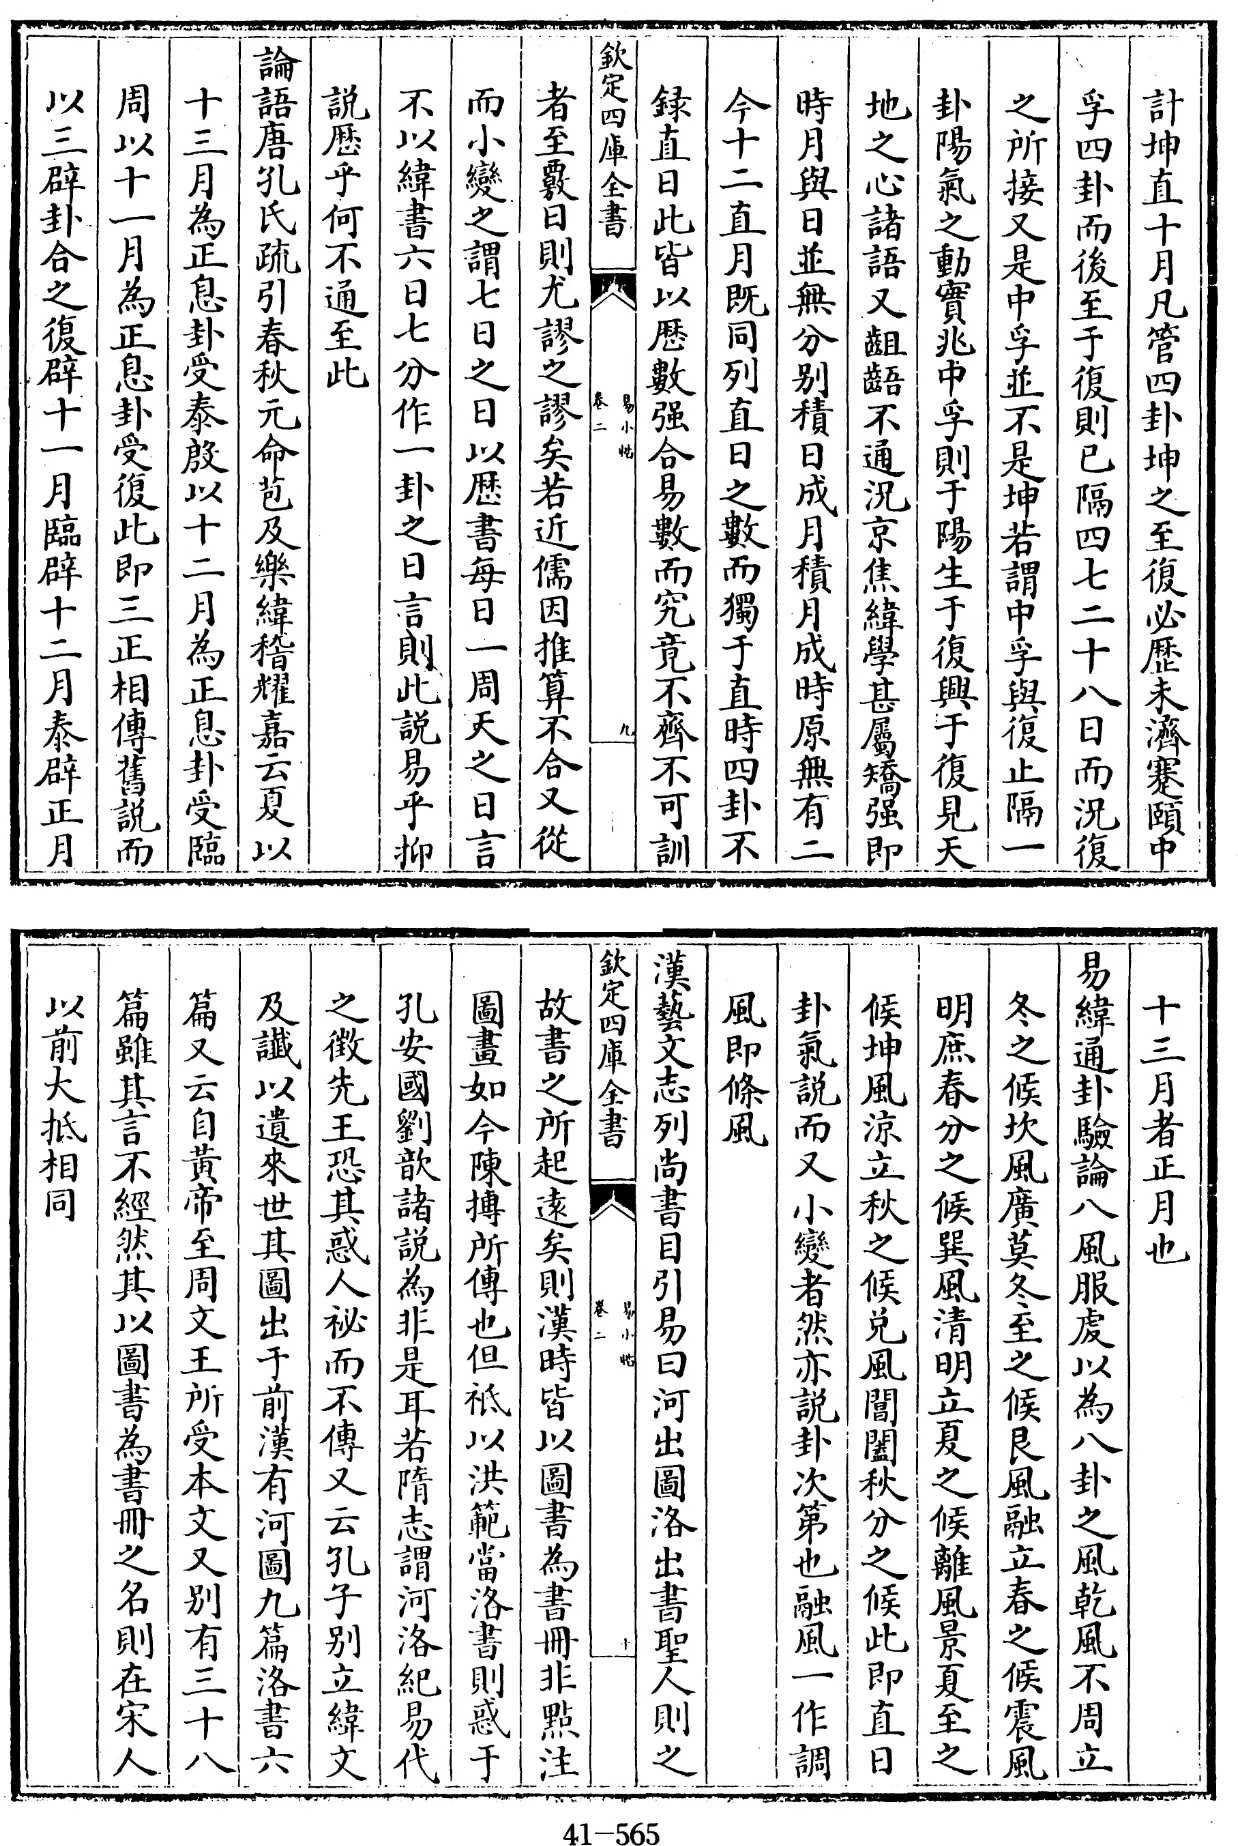 計坤直十月凡管四卦坤之至復必歴未濟蹇頤中
孚四卦而後至于復則已隔四七二十八日而況復
之所接又是中孚並不是坤若謂中孚與復止隔一
卦陽氣之動實兆中孚則于陽生于復興于復見天
地之心諸語又齟齬不通況京焦緯學甚屬矯强即
時月與日並無分别積日成月積月成時原無有二
今十二直月既同列直日之數而獨于直時四卦不
録直日此皆以歴數强合易數而究竟不齊不可訓
欽定四庫全書
易小帖
卷二
九
者至覈日則尤謬之謬矣若近儒因推算不合又從
而小變之謂七日之日以歴書每日一周天之日言
不以緯書六日七分作一卦之日言則此説易乎抑
説歴乎何不通至此
論語唐孔氏疏引春秋元命苞及樂緯稽耀嘉云夏以
十三月為正息卦受泰殷以十二月為正息卦受臨
周以十一月為正息卦受復此即三正相傳舊説而
以三辟卦合之復辟十一月臨辟十二月泰辟正月
十三月者正月也
易緯通卦驗論八風服虔以為八卦之風乾風不周立
冬之候坎風廣莫冬至之候艮風融立春之候震風
明庶春分之候巽風清明立夏之候離風景夏至之
候坤風涼立秋之候兌風閶闔秋分之候此即直日
卦氣説而又小變者然亦説卦次第也融風一作調
風即條風
漢藝文志列尚書目引易曰河出圖洛出書聖人則之
欽定四庫全書
易小帖
卷二
十
故書之所起逺矣則漢時皆以圖書為書冊非點注
圖畫如今陳摶所傳也但祗以洪範當洛書則惑于
孔安國劉歆諸説為非是耳若隋志謂河洛紀易代
之徴先王恐其惑人祕而不傳又云孔子别立緯文
及讖以遺來世其圖出于前漢有河圖九篇洛書六
篇又云自黄帝至周文王所受本文又别有三十八
篇雖其言不經然其以圖書為書冊之名則在宋人
以前大抵相同
41-565